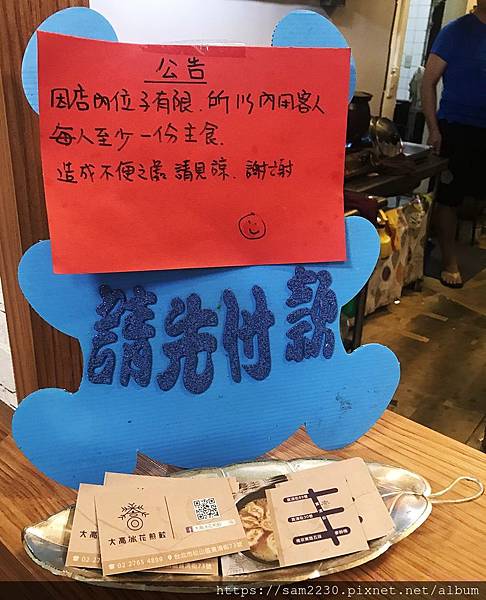 公告
因店內位子有限，所以內用客人
每人至少一份主食。
造成不便之處 請見諒. 謝謝
請先付款
大高冰花煎餃
02 2765 4899
台北市松山區寶清街73號
https://sam2230.pixnet.net/album